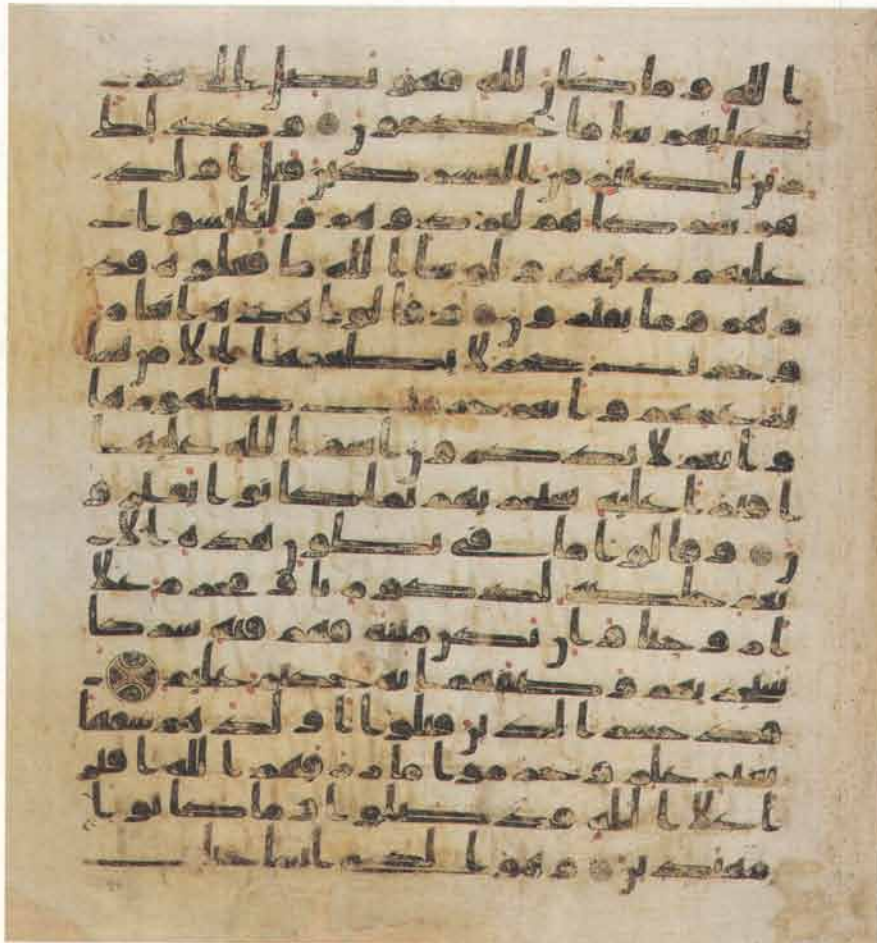 الله وما كان لله فهو يصل الى شر
كايهم سا ما يحكمون وكذلك
زين لكثير من المشركين قتل اولد
هم شركاهم ليردوهم وليلبسوا
عليهم دينهم ولو شا الله ما فعلوه فذر
هم وما يفترون وقالوا هذه انعام
وحرث حجر لا يطعمها الا من نشا
بزعمهم وانعم حرمت ظهورها
وانعم لا يذكرون اسم الله عليها
افترا عليه سيجزيهم بما كانوا يفترو
ن وقالوا ما في بطون هذه الا
نعم خالصة لذكورنا ومحرم على
ازوجنا وان يكن ميتة فهم فيه شركا
سيجزيهم وصفهم انه حكيم عليم
قد خسر الذين قتلوا اولدهم سفها
بغير علم وحرموا ما رزقهم الله افتر
ا على الله قد ضلوا وما كانوا
مهتدين وهو الذي انشا جنت